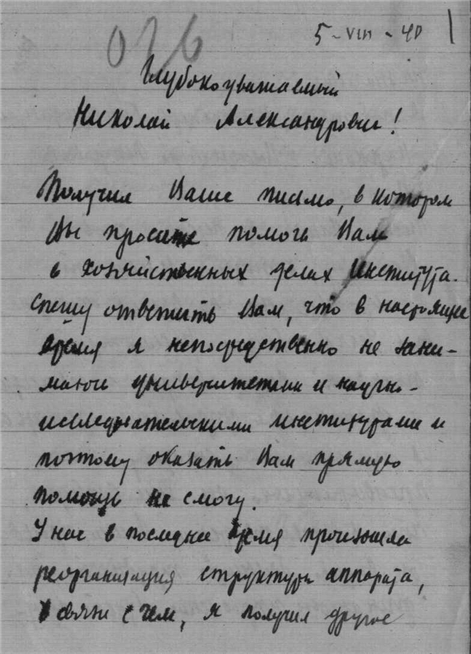 026
5-VIII-40
1
Глубокоуважаемый
Николай Александрович!
Получил Ваше письмо, в котором
Вы просите помочь Вам
в хозяйственных делах института.
Спешу ответить Вам, что в настоящее
время я непосредственно не зани-
маюсь университетами и научно-
исследовательскими институтами и
поэтому оказать Вам прямую
помощь не смогу.
У нас в последнее время произошла
реорганизация структуры аппарата,
в связи с чем, я получил другое